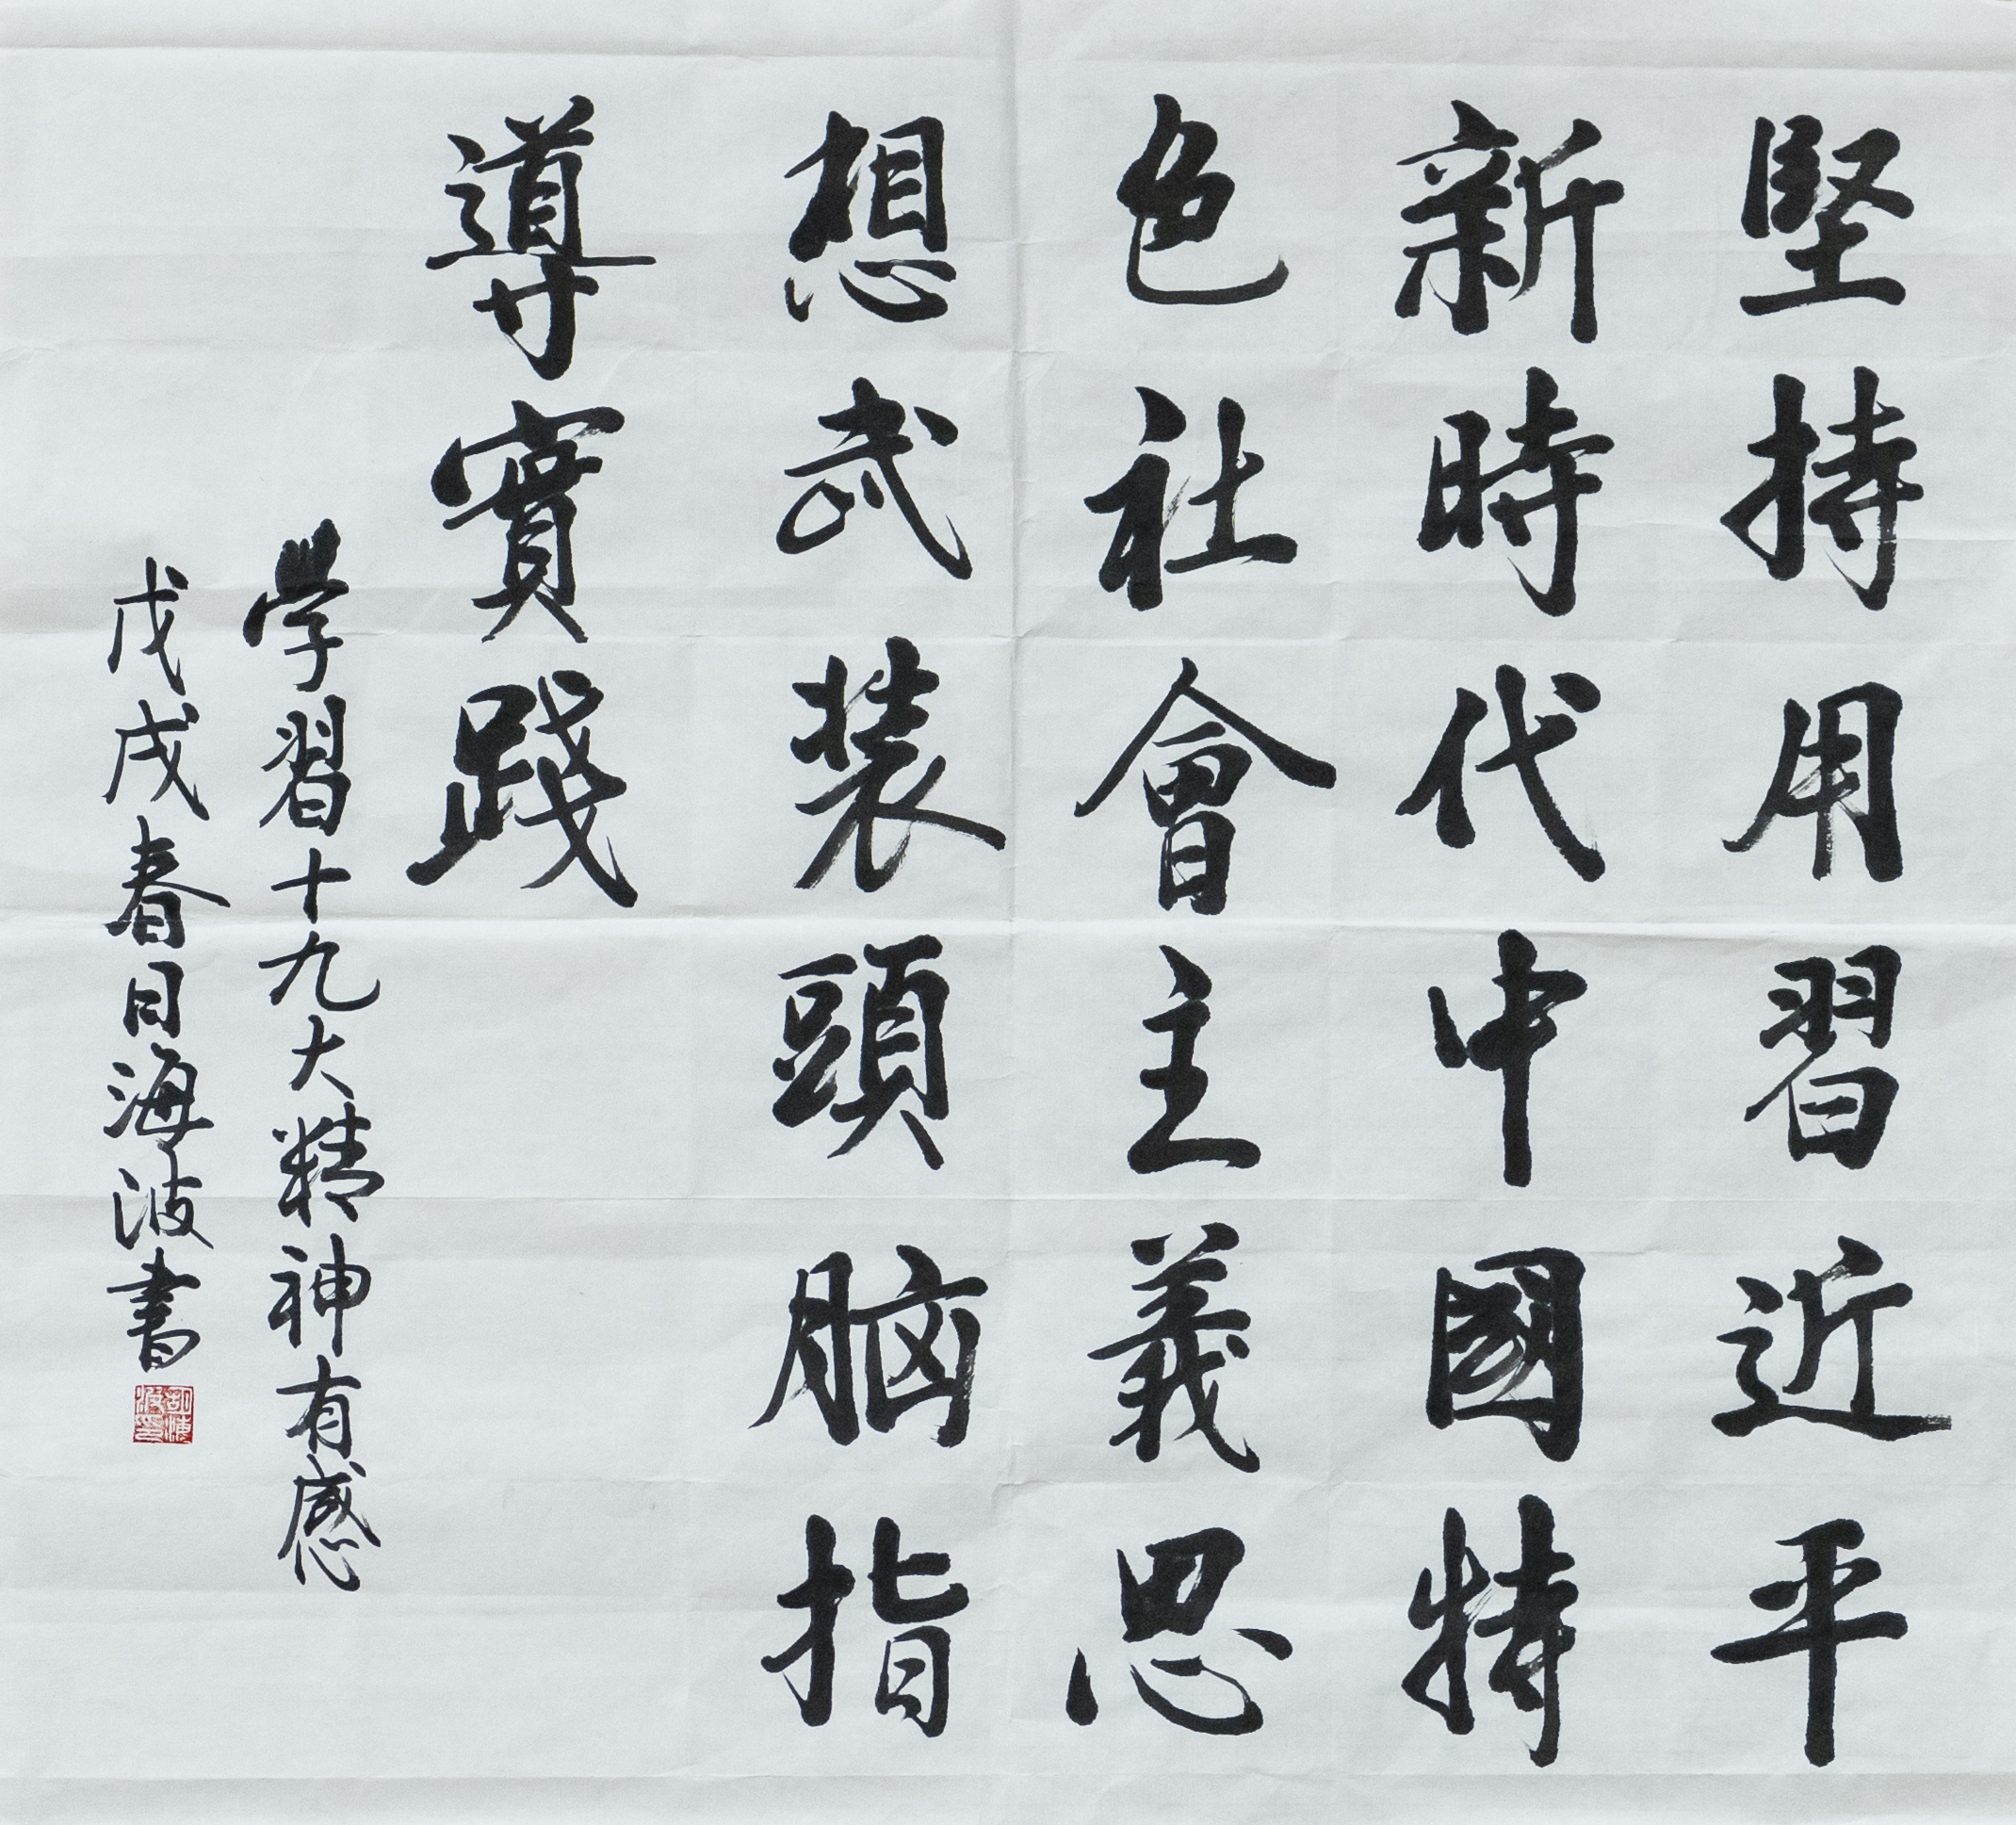 堅持用習近平
新時代中國特
色社會主義思
想武装頭脑指
導實踐
學習十九大精神有感
戊戌春日海波書